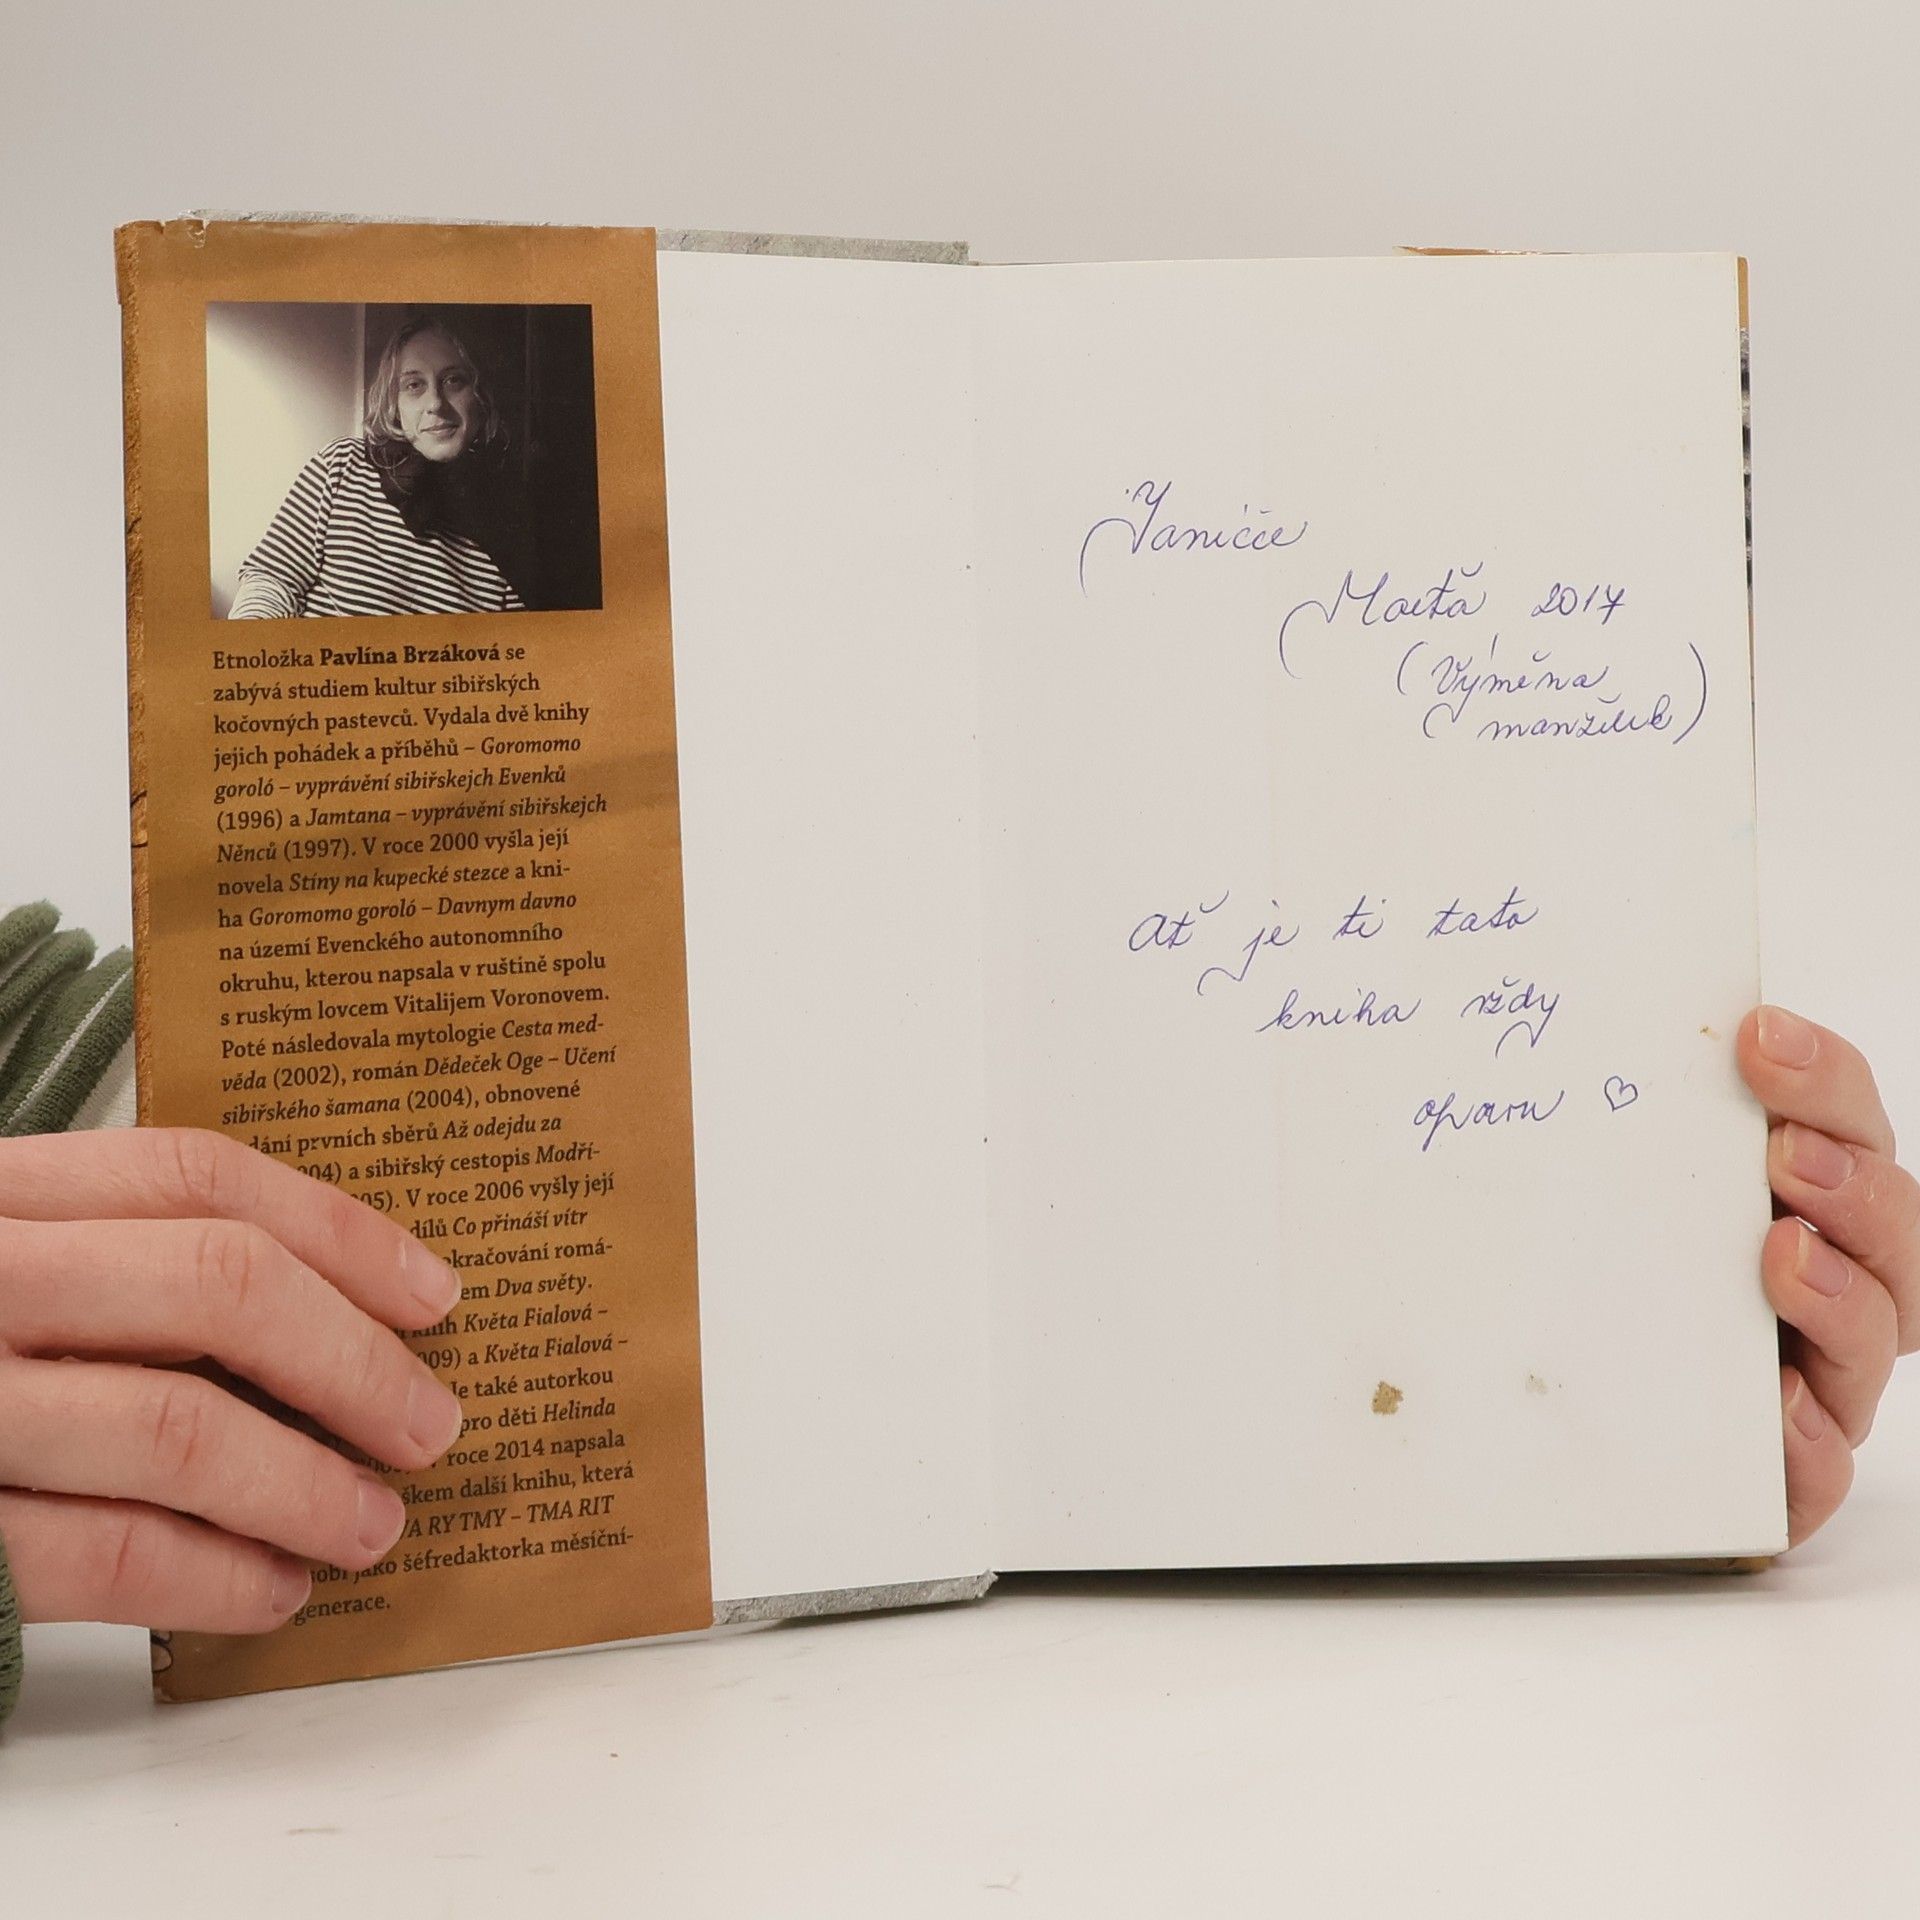 Etnoložka Pavlína Brzáková se
zabývá studiem kultur sibiřských
kočovných pastevců. Vydala dvě knihy
jejich pohádek a příběhů – Goromomo
goroló – vyprávění sibiřskejch Evenků
(1996) a Jamtana – vyprávění sibiřskejch
Něnců (1997). V roce 2000 vyšla její
novela Stíny na kupecké stezce a kni-
ha Goromomo goroló – Davnym davno
na území Evenckého autonomního
okruhu, kterou napsala v ruštině spolu
s ruským lovcem Vitalijem Voronovem.
Poté následovala mytologie Cesta med-
věda (2002), román Dědeček Oge – Učení
sibiřského šamana (2004), obnovené
dání prvních sběrů Až odejdu za
04) a sibiřský cestopis Modří-
05). V roce 2006 vyšly její
dílů Co přináší vítr
okračování romá-
em Dva světy.
knih Květa Fialová –
009) a Květa Fialová –
Je také autorkou
pro děti Helinda
roce 2014 napsala
škem další knihu, která
VA RY TMY – TMA RIT
sobí jako šéfredaktorka měsíční-
generace.
Janičce
2017
(Výměna
manželek)
Ať je ti tato
kniha vždy
oparu ♡